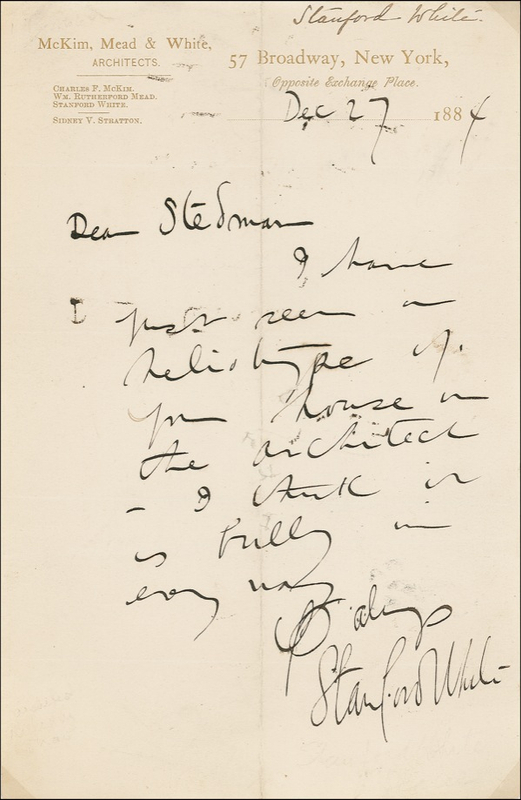 Stanford White.
McKim, Mead & White,
ARCHITECTS.
57 Broadway, New York,
Opposite Exchange Place.
CHARLES F. McKIM.
WM. RUTHERFORD MEAD.
STANFORD WHITE.
SIDNEY V. STRATTON.
Dec 27 1884
Dear Stedman
I have
just seen a
heliotype of
your house in
the architect
- I think it
is bully in
every way
Stanford White